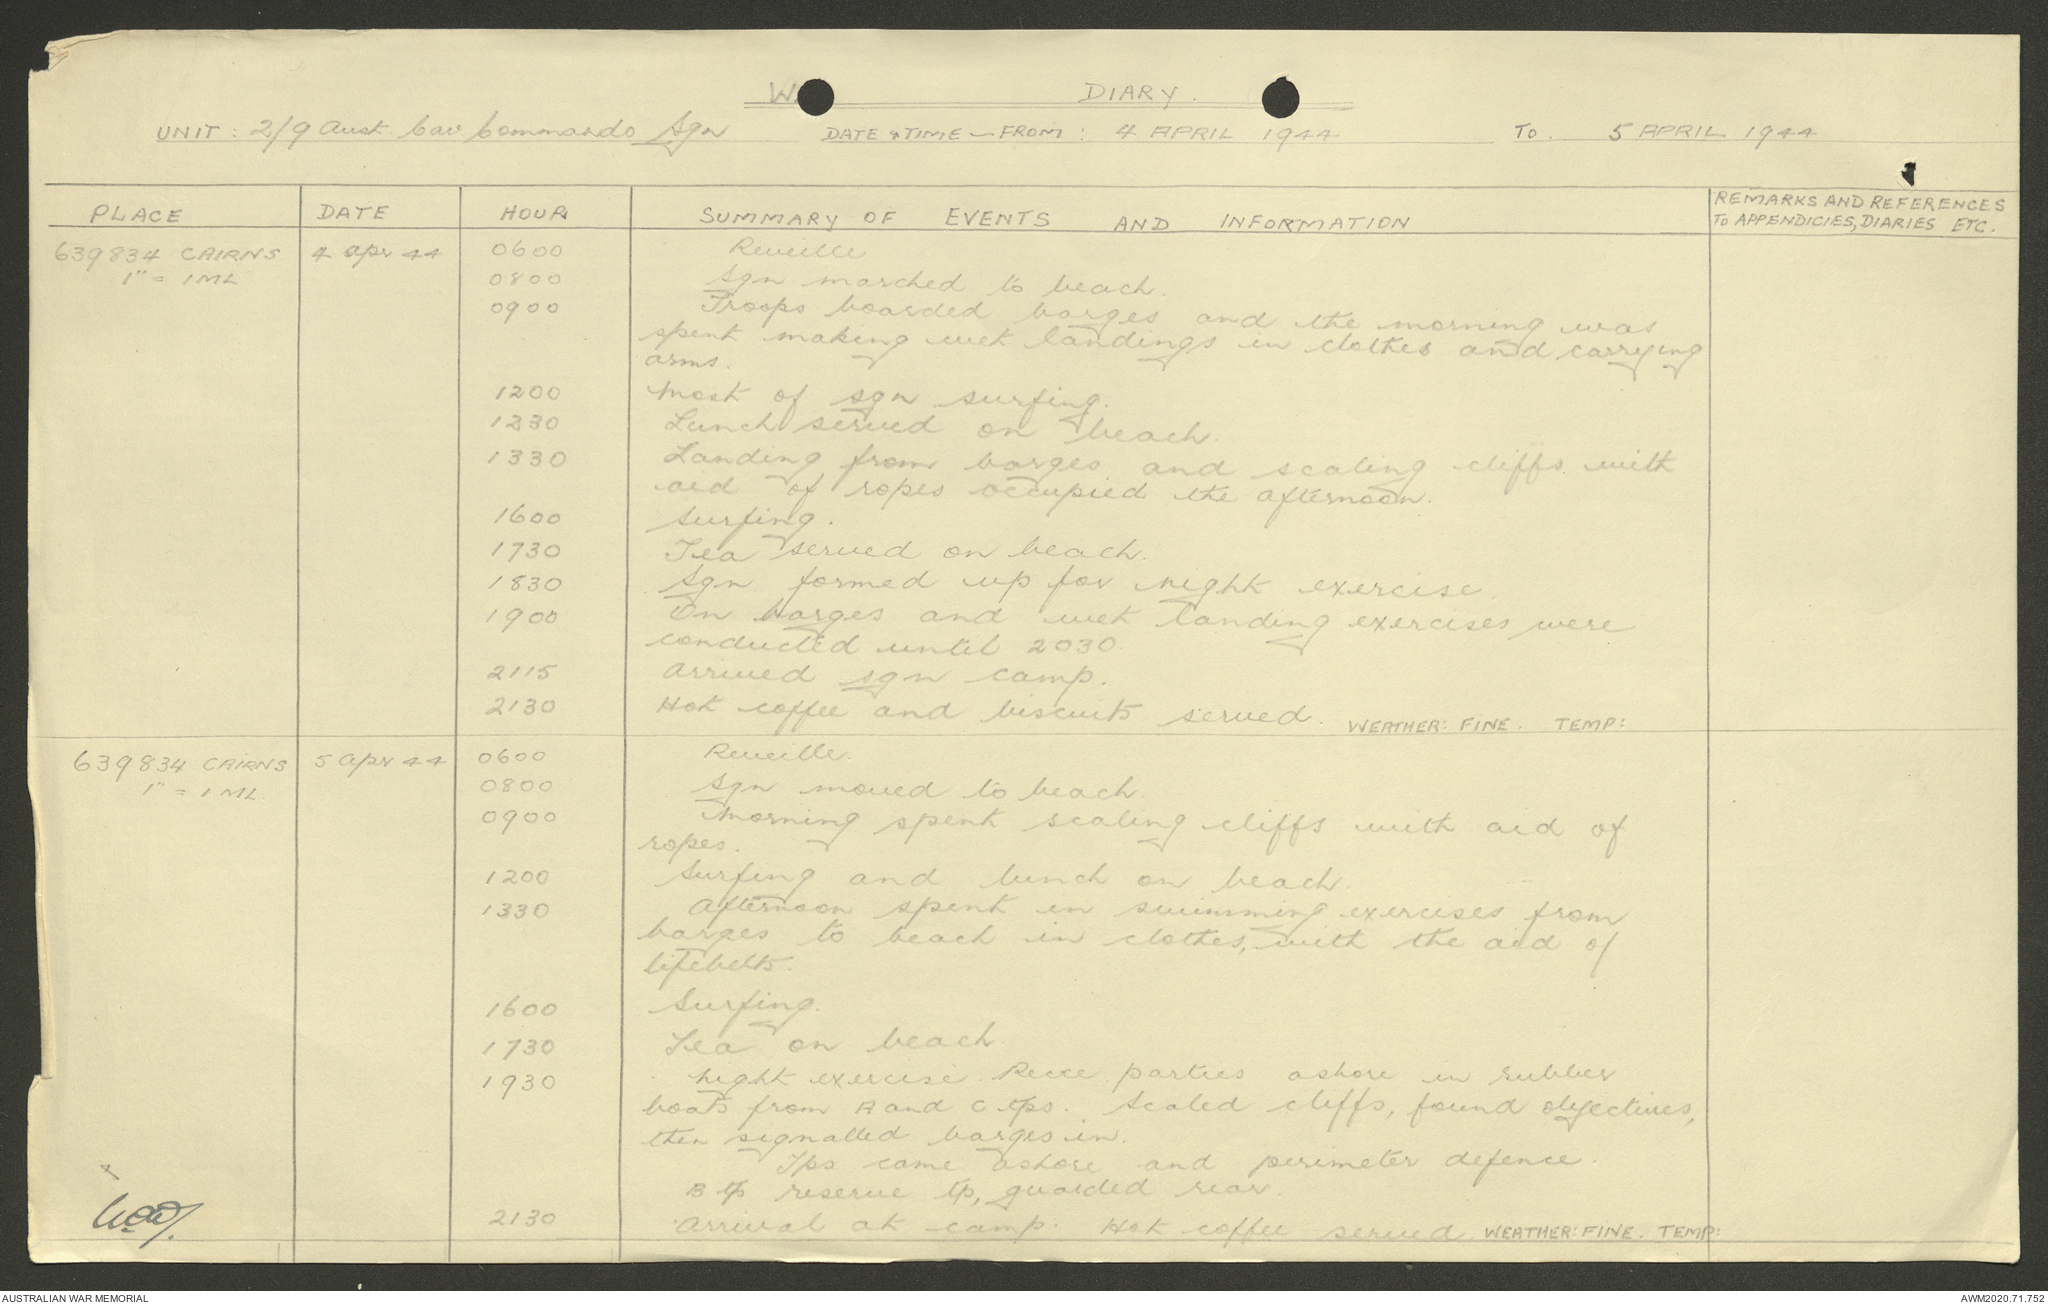 W DIARY.
UNIT: 2/9 Aust. Cav. Commando Sqn DATE & TIME — FROM: 4 APRIL 1944 TO. 5 APRIL 1944
PLACE DATE HOUR SUMMARY OF EVENTS AND INFORMATION REMARKS AND REFERENCES
TO APPENDICIES, DIARIES ETC.
639834 CAIRNS 4 Apr 44 0600 Reveille
1" = 1 ML 0800 Sqn marched to beach.
0900 Troops boarded barges and the morning was
spent making wet landings in clothes and carrying
arms.
1200 Most of sqn surfing.
1230 Lunch served on beach.
1330 Landing from barges and scaling cliffs with
aid of ropes occupied the afternoon.
1600 Surfing.
1730 Tea served on beach.
1830 Sqn formed up for night exercise.
1900 On barges and wet landing exercises were
conducted until 2030.
2115 Arrived sqn camp.
2130 Hot coffee and biscuits served. WEATHER: FINE. TEMP:
639834 CAIRNS 5 Apr 44 0600 Reveille.
1" = 1 ML 0800 Sqn moved to beach.
0900 Morning spent scaling cliffs with aid of
ropes.
1200 Surfing and lunch on beach.
1330 Afternoon spent in swimming exercises from
barges to beach in clothes, with the aid of
lifebelts.
1600 Surfing.
1730 Tea on beach
1930 Night exercise. Recce parties ashore in rubber
boats from A and C tps. Scaled cliffs, found objectives,
then signalled barges in.
Tps came ashore and perimeter defence.
B tp reserve tp, guarded rear.
2130 Arrival at camp. Hot coffee served WEATHER: FINE. TEMP:
AUSTRALIAN WAR MEMORIAL AWM2020.71.752